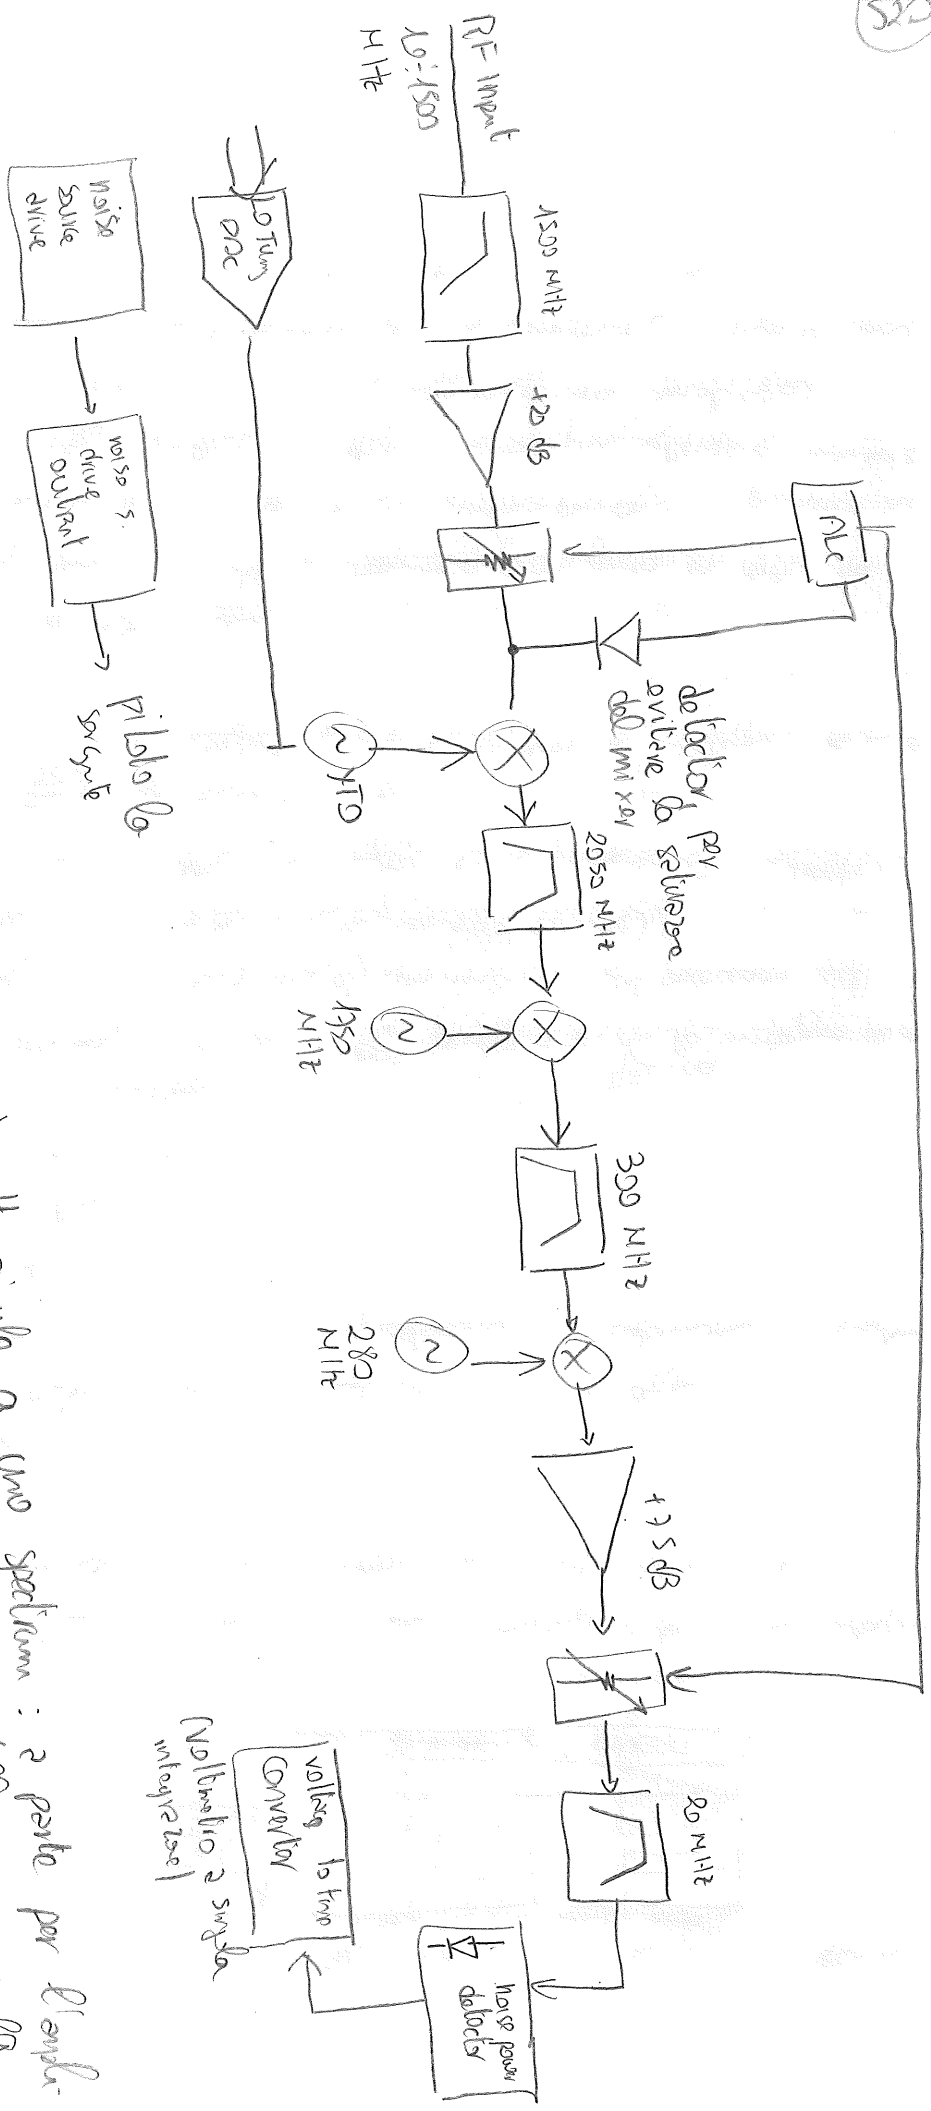 RF input
10÷1500
MHz
1500 MHz
+20 dB
ALC
detector per
evitare la saturazione
del mixer
LO Tuning
DAC
YTO
2050 MHz
1750
MHz
300 MHz
280
MHz
+75 dB
20 MHz
noise power
detector
voltage to time
converter
(voltmetro a singola
integrazione)
noise
source
drive
noise s.
drive
output
pilota la
sorgente
simile a uno spectrum : a parte per l'ampli-